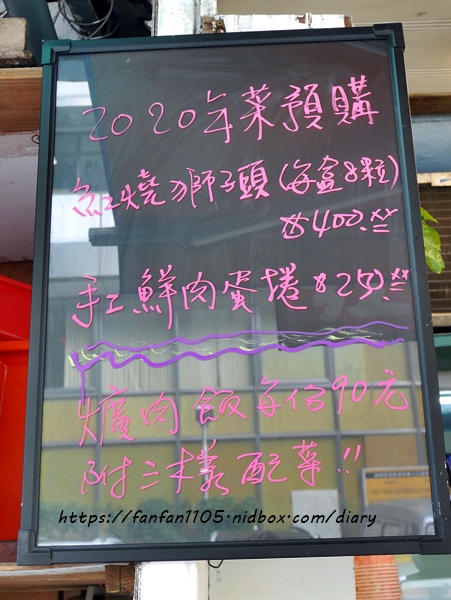 2020年菜預購
紅燒獅子頭(每盒8粒)
$400.××
手工鮮肉蛋捲$250.××
爌肉飯每份90元
附三樣配菜!!
https://fanfan1105.nidbox.com/diary